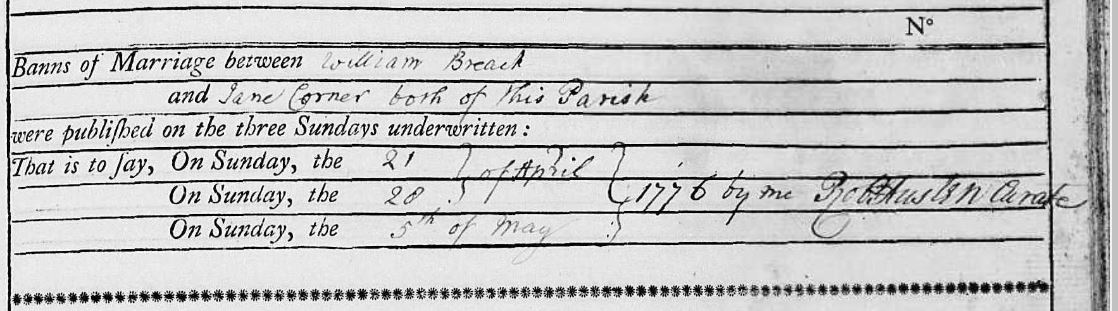 N°
Banns of Marriage between William Breach
and Jane Corner both of this Parish
were publiſhed on the three Sundays underwritten:
That is to ſay, On Sunday, the 21 } of April
On Sunday, the 28 } 1776 by me Robt Austen Curate
On Sunday, the 5th of May }